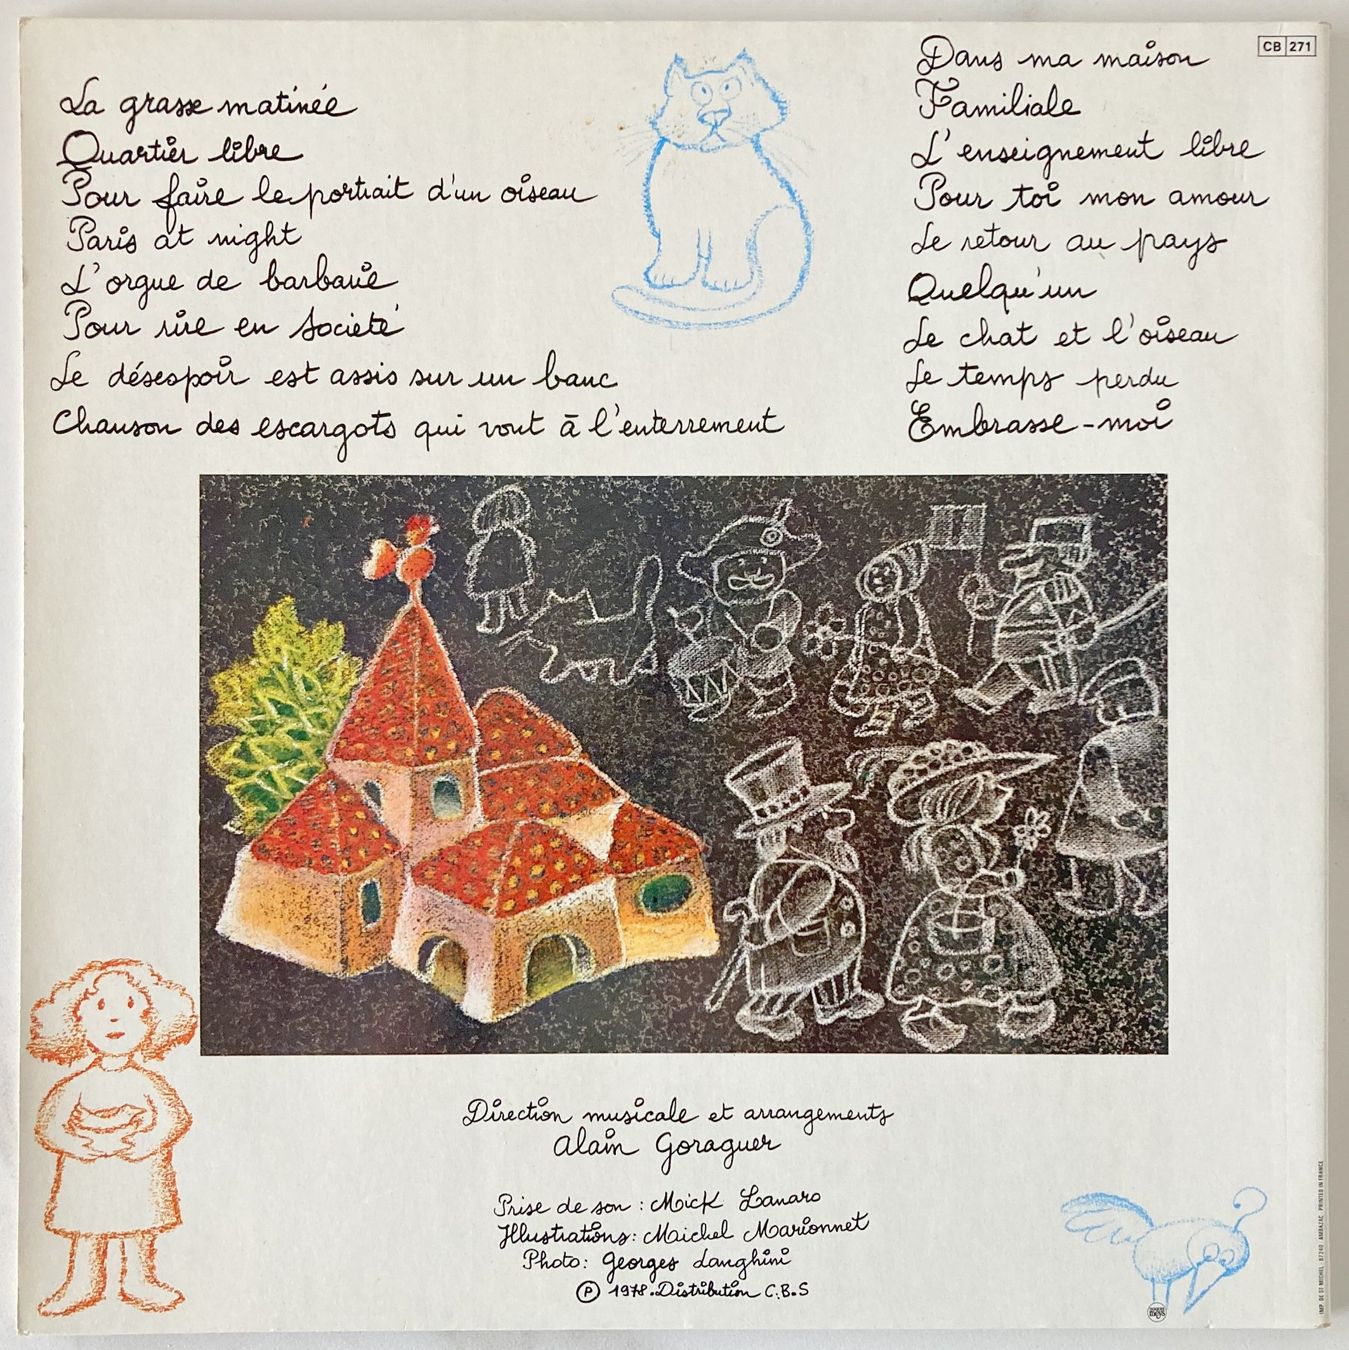 La grasse matinée
Quartier libre
Pour faire le portrait d'un oiseau
Paris at night
L'orgue de barbarie
Pour rire en société
Le désespoir est assis sur un banc
Chanson des escargots qui vont à l'enterrement
Dans ma maison
Familiale
L'enseignement libre
Pour toi mon amour
Le retour au pays
Quelqu'un
Le chat et l'oiseau
Le temps perdu
Embrasse-moi
CB 271
Direction musicale et arrangements
Alain Goraguer
Prise de son : Mick Lanaro
Illustrations : Maichel Marionnet
Photo : Georges Langhini
℗ 1978. Distribution C.B.S
IMP. DE ST-MICHEL 87240 AMBAZAC PRINTED IN FRANCE